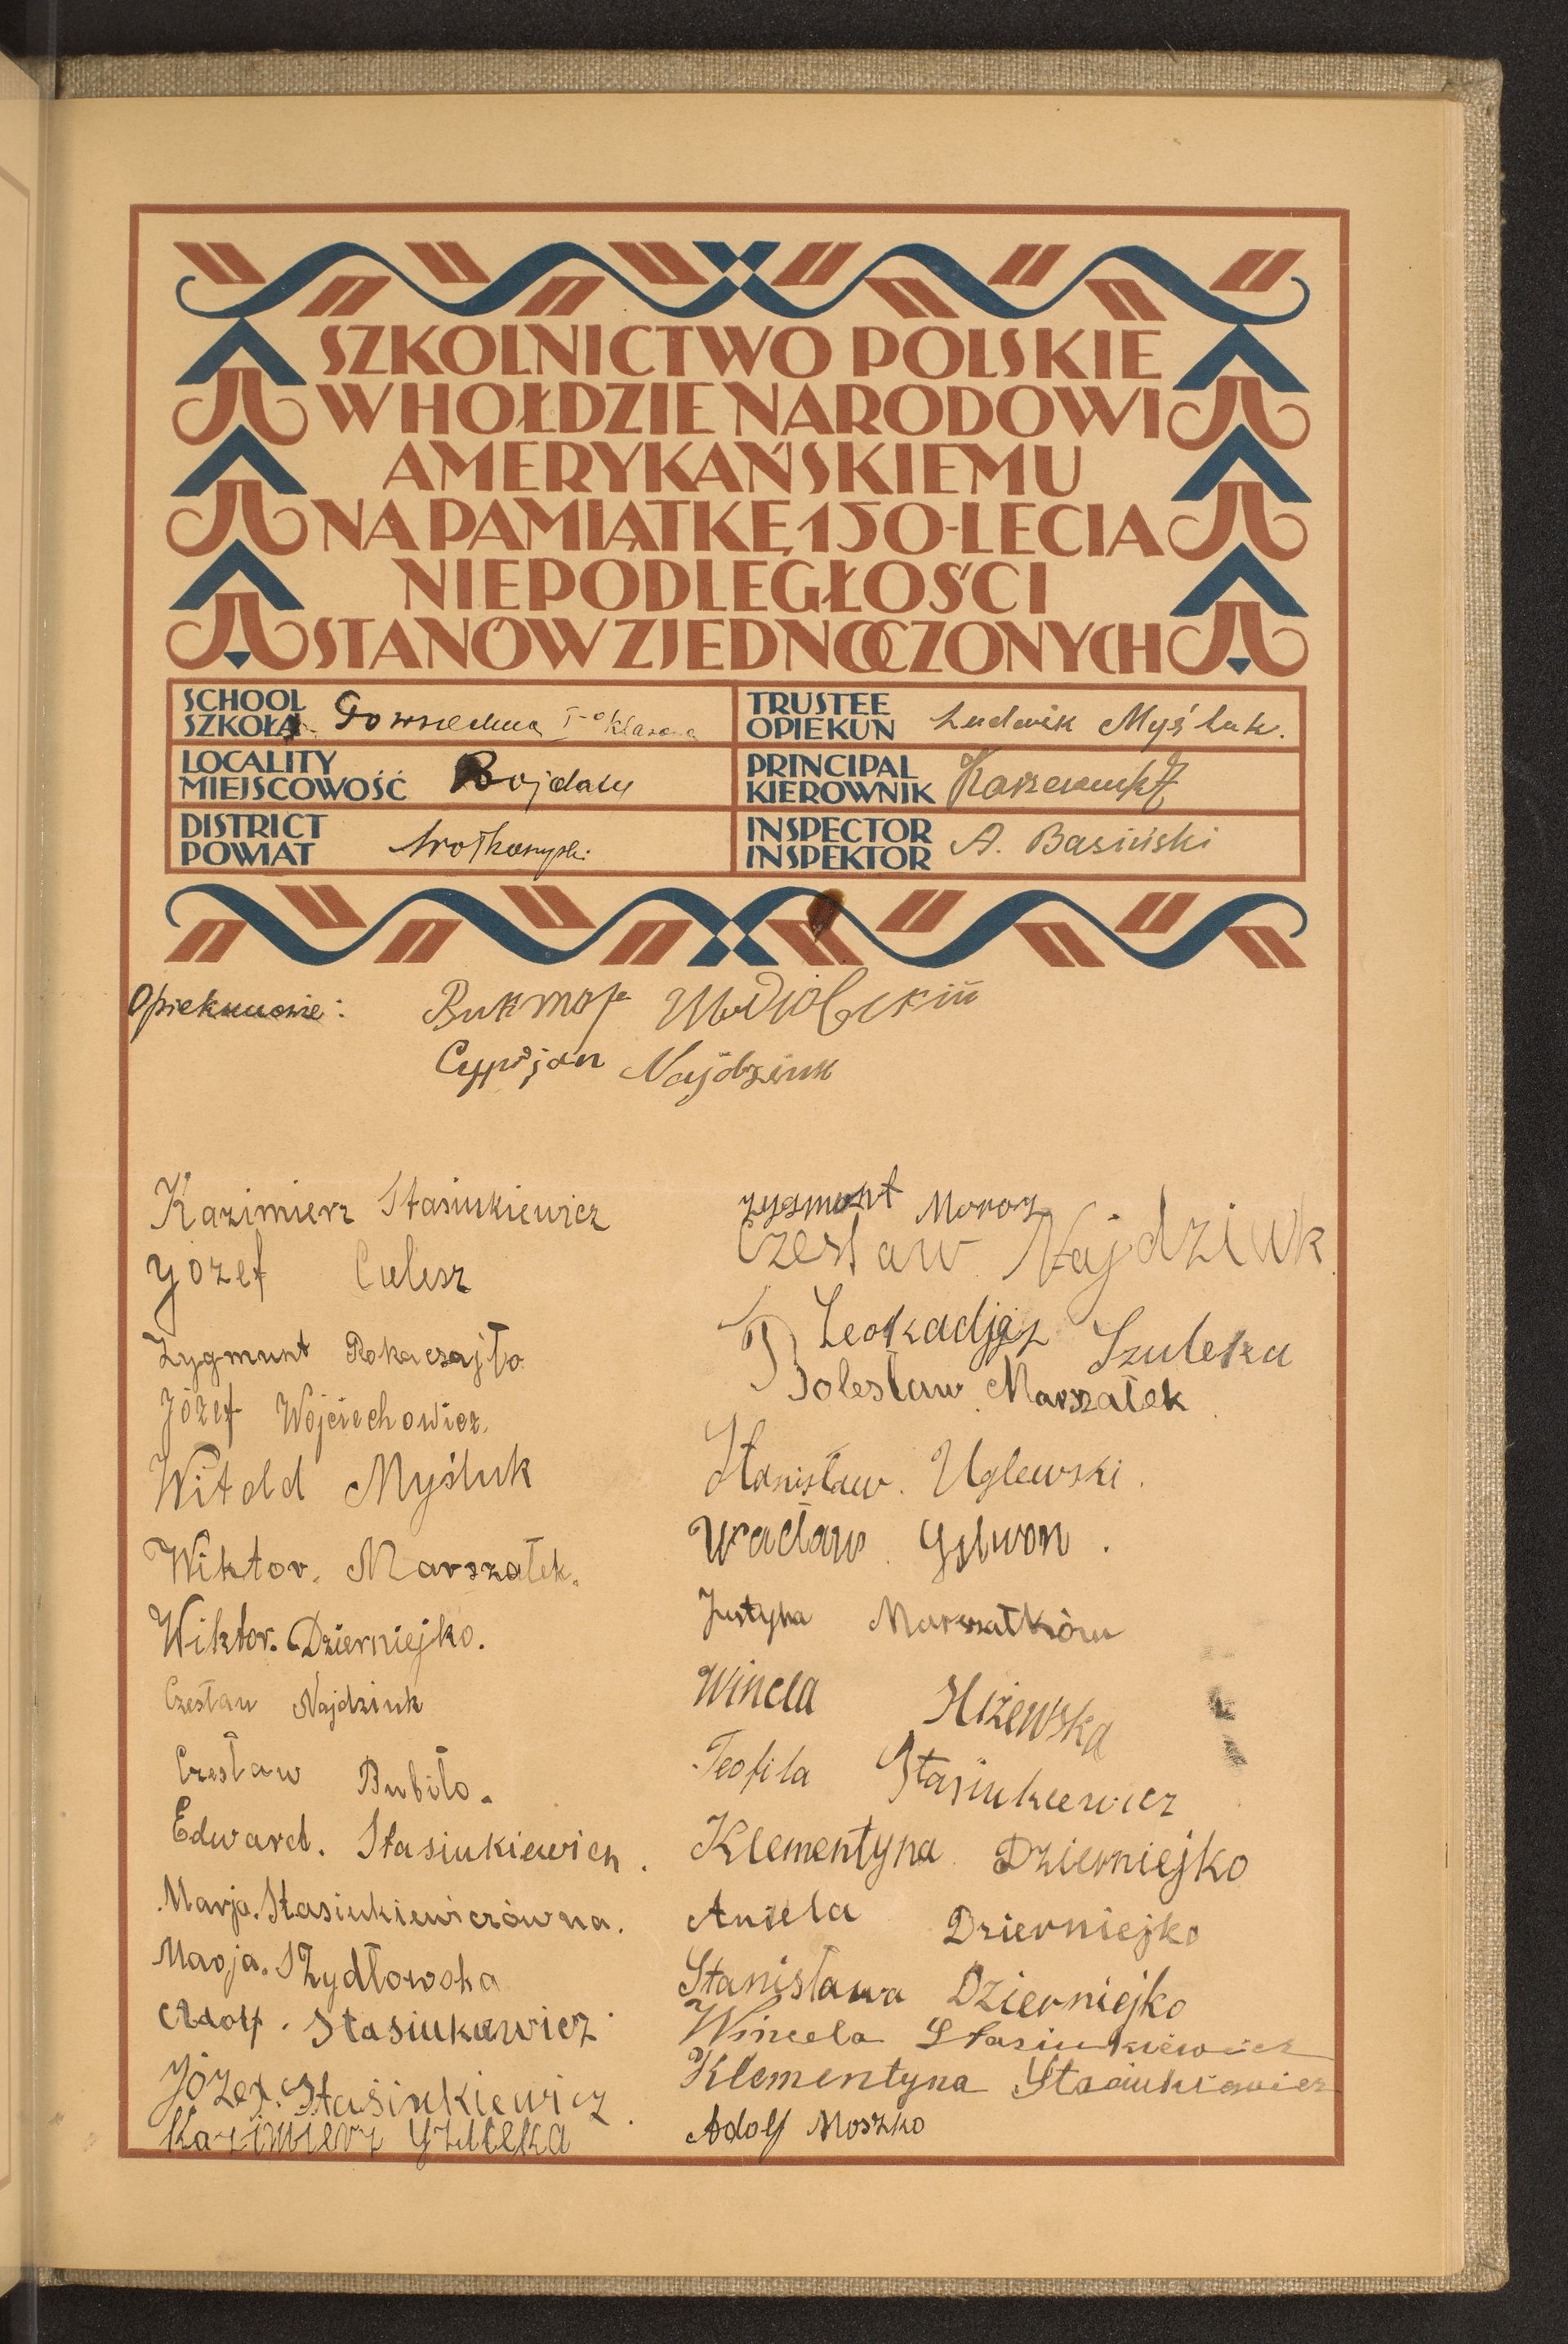 SZKOLNICTWO POLSKIE
W HOŁDZIE NARODOWI
AMERYKAŃSKIEMU
NA PAMIĄTKĘ 150-LECIA
NIEPODLEGŁOŚCI
STANÓW ZJEDNOCZONYCH
SCHOOL
SZKOŁA Powszechna I-o klasowa
TRUSTEE
OPIEKUN Ludwik Myśluk.
LOCALITY
MIEJSCOWOŚĆ Bojdaty
PRINCIPAL
KIEROWNIK
DISTRICT
POWIAT Wołkowyski
INSPECTOR
INSPEKTOR A. Basiński
Opiekunowie:
Cyprjan Najdziuk
Kazimierz Stasiukiewicz
Józef Culisz
Zygmunt Rokaszajło
Józef Wojciechowicz.
Witold Myśluk
Wiktor. Marszałek.
Wiktor. Dzierniejko.
Czesław Najdziuk
Czesław Bubiło.
Edward. Stasiukiewicz.
Marja. Stasiukiewiczówna.
Marja. Szydłowska
Adolf. Stasiukiewicz
Józef. Stasiukiewicz.
Kazimierz Szuleka
Zygmunt Moroz
Czesław Najdziuk.
Leokadja Szuleka
Bolesław Marszałek
Stanisław. Uglewski.
Wacław. Gylwon.
Justyna Marszałków
Wincla Hiżewska
Teofila Stasiukiewicz
Klementyna Dzierniejko
Aniela Dzierniejko
Stanisława Dzierniejko
Wincela Stasiukiewicz
Klementyna Stasiukiewicz
Adolf Moszko